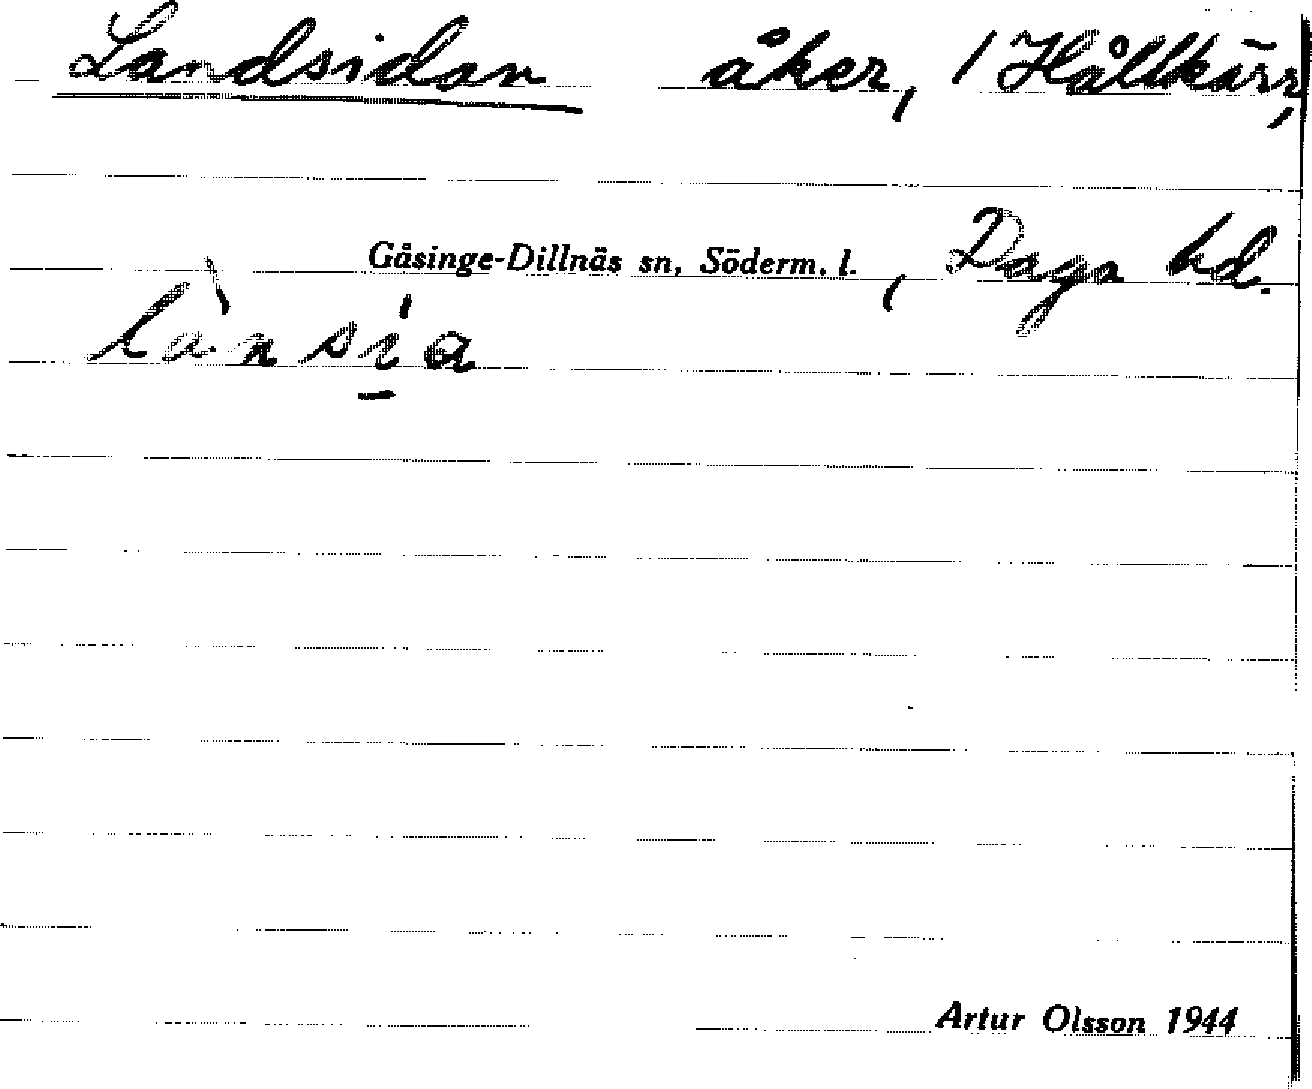 Landsidan åker, / Hållkärr,
Gåsinge-Dillnäs sn, Söderm. l., Daga hd.
lànsía
Artur Olsson 1944